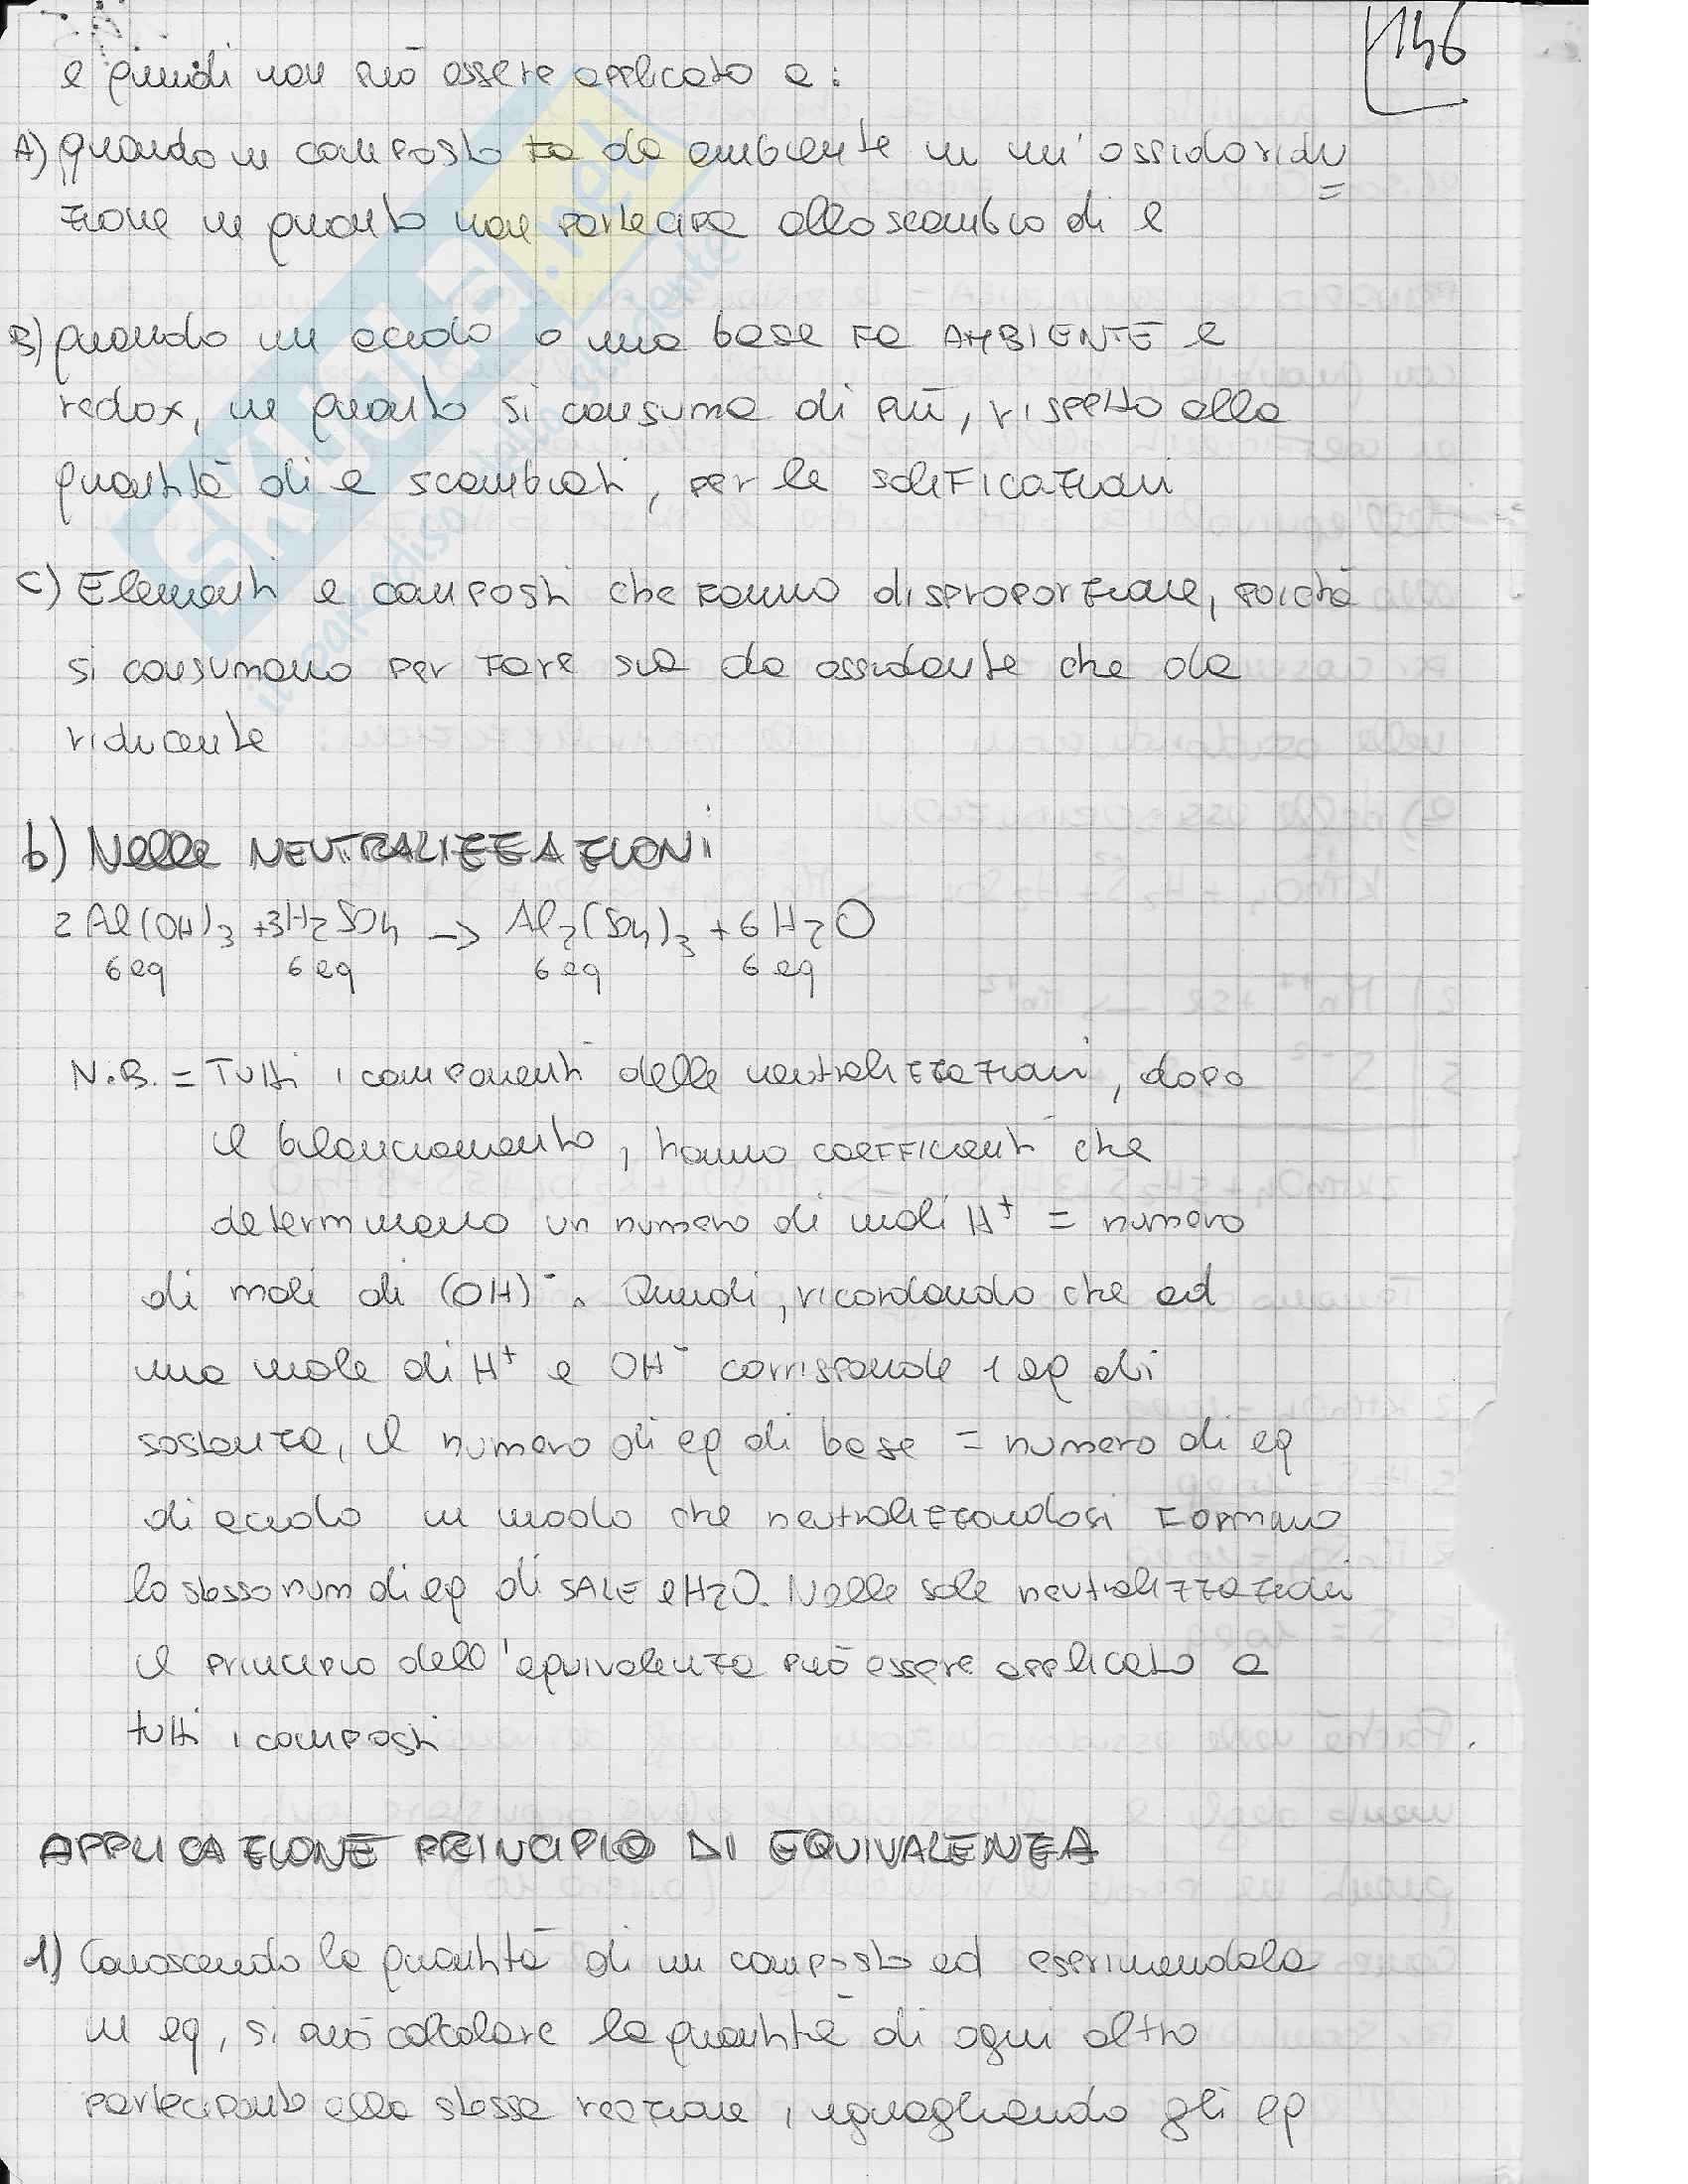 146
e quindi non può essere applicato a:
A) quando un composto fa da ambiente in un'ossidoridu=
zione in quanto non partecipa allo scambio di e
B) quando un acido o una base fa AMBIENTE e
redox, in quanto si consuma di più, rispetto alla
quantità di e scambiati, per le salificazioni
C) Elementi e composti che fanno disproporzione, poichè
si consumano per fare sia da ossidante che da
riducente
b) Nelle NEUTRALIZZAZIONI
2 Al(OH)3 + 3H2SO4 -> Al2(SO4)3 + 6 H2O
6 eq 6 eq 6 eq 6 eq
N.B. = Tutti i componenti delle neutralizzazioni, dopo
il bilanciamento, hanno coefficienti che
determinano un numero di moli H+ = numero
di moli di (OH)-. Quindi, ricordando che ad
una mole di H+ e OH- corrisponde 1 eq di
sostanza, il numero di eq di base = numero di eq
di acido in modo che neutralizzandosi formino
lo stesso num di eq di SALE e H2O. Nelle sole neutralizzazioni
il principio dell'equivalenza può essere applicato a
tutti i composti
APPLICAZIONE PRINCIPIO DI EQUIVALENZA
1) Conoscendo la quantità di un composto ed esprimendola
in eq, si può calcolare la quantità di ogni altro
partecipante alla stessa reazione, uguagliando gli eq
SKUOLA.net